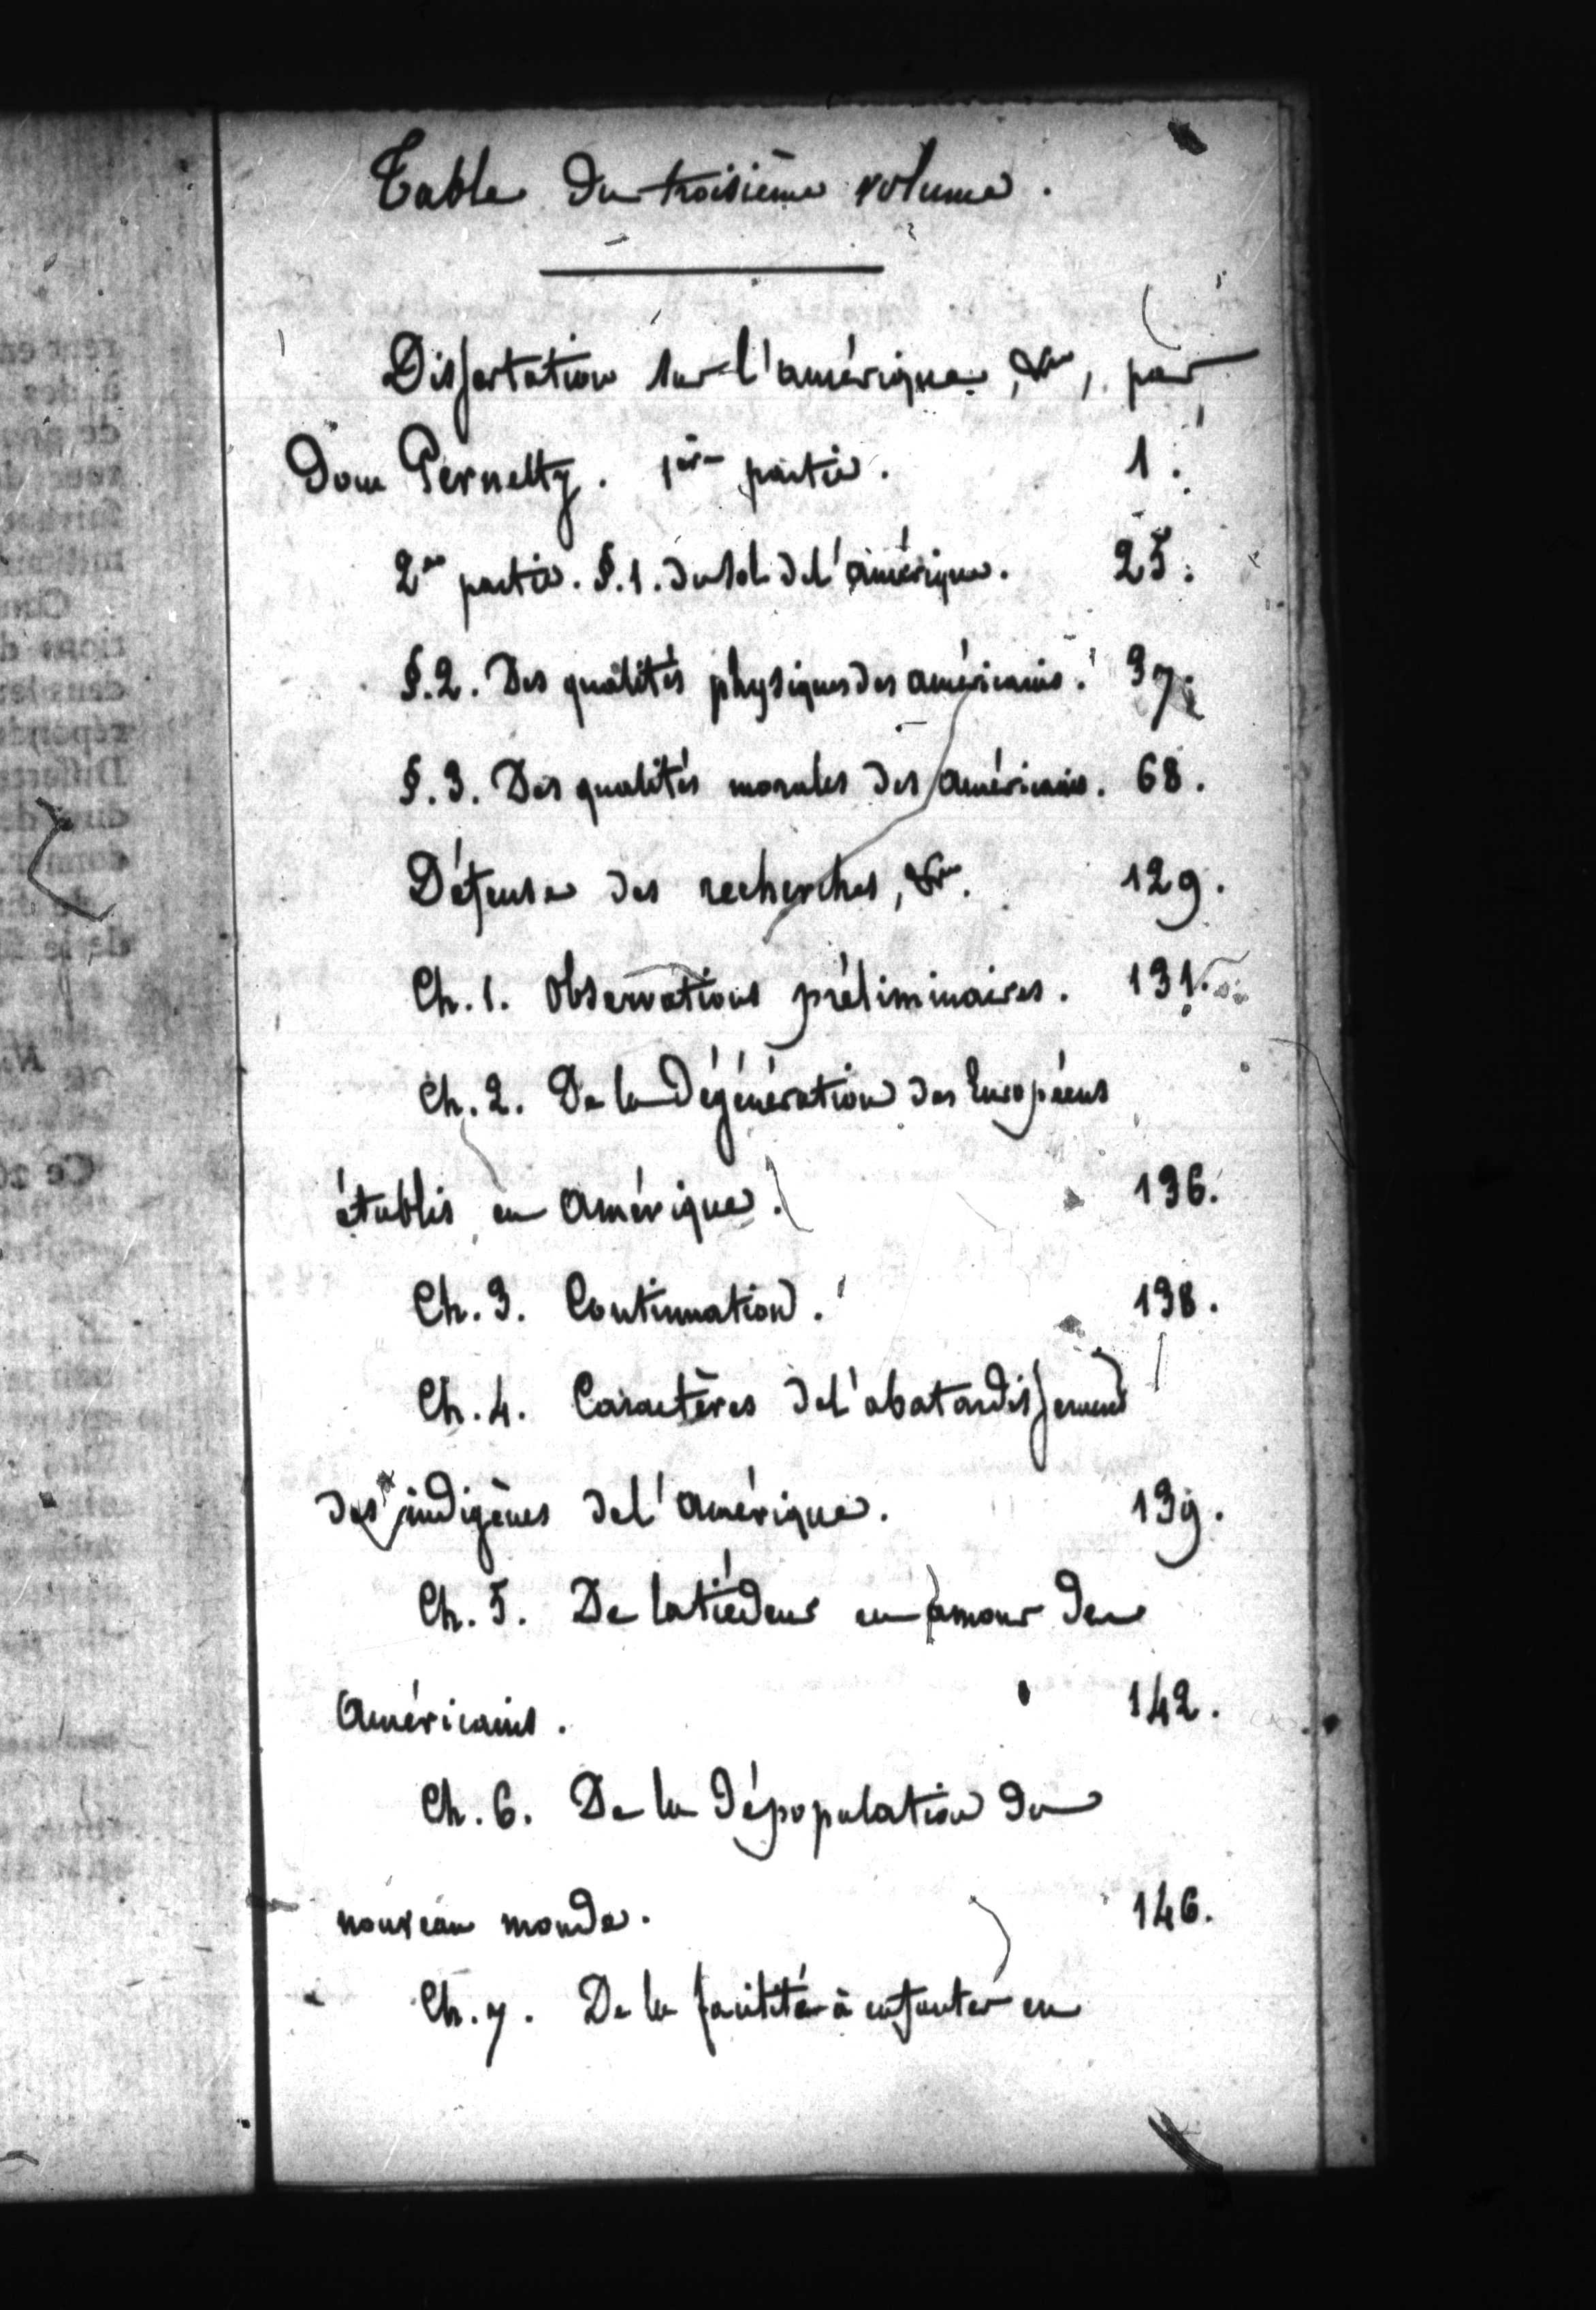 Table du troisième volume.
Dissertation sur l'amérique, &c, par
Dom Pernetty. 1ère partie. 1.
2e partie. §.1. du sol de l'amérique. 25.
§.2. Des qualités physiques des américains. 37.
§.3. Des qualités morales des américains. 68.
Défense des recherches, &c. 129.
Ch.1. Observations préliminaires. 131.
Ch.2. De la dégénération des Européens
établis en Amérique. 136.
Ch.3. Continuation. 138.
Ch.4. Caractères de l'abatardissement
des indigènes de l'Amérique. 139.
Ch.5. De la tiédeur en amour des
Américains. 142.
Ch.6. De la dépopulation du
nouveau monde. 146.
Ch.7. De la facilité à enfanter en